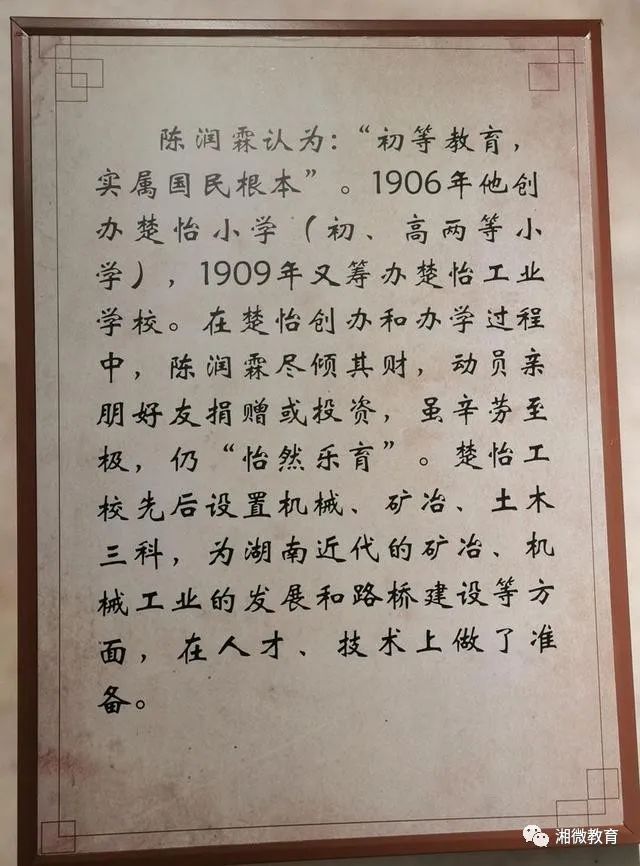 陈润霖认为：“初等教育，
实属国民根本”。1906年他创
办楚怡小学（初、高两等小
学），1909年又筹办楚怡工业
学校。在楚怡创办和办学过程
中，陈润霖尽倾其财，动员亲
朋好友捐赠或投资，虽辛劳至
极，仍“怡然乐育”。楚怡工
校先后设置机械、矿冶、土木
三科，为湖南近代的矿冶、机
械工业的发展和路桥建设等方
面，在人才、技术上做了准
备。
湘微教育